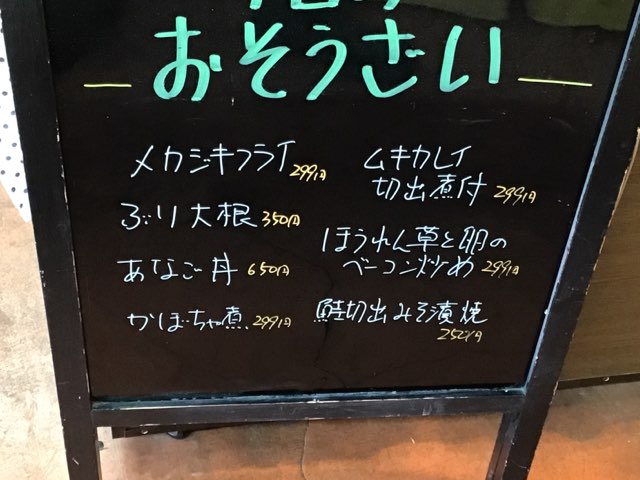 おそうざい
メカジキフライ 299円
ぶり大根 350円
あなご丼 650円
かぼちゃ煮 299円
ムキカレイ
切出煮付 299円
ほうれん草と卵の
ベーコン炒め 299円
鮭切出みそ漬焼
252円